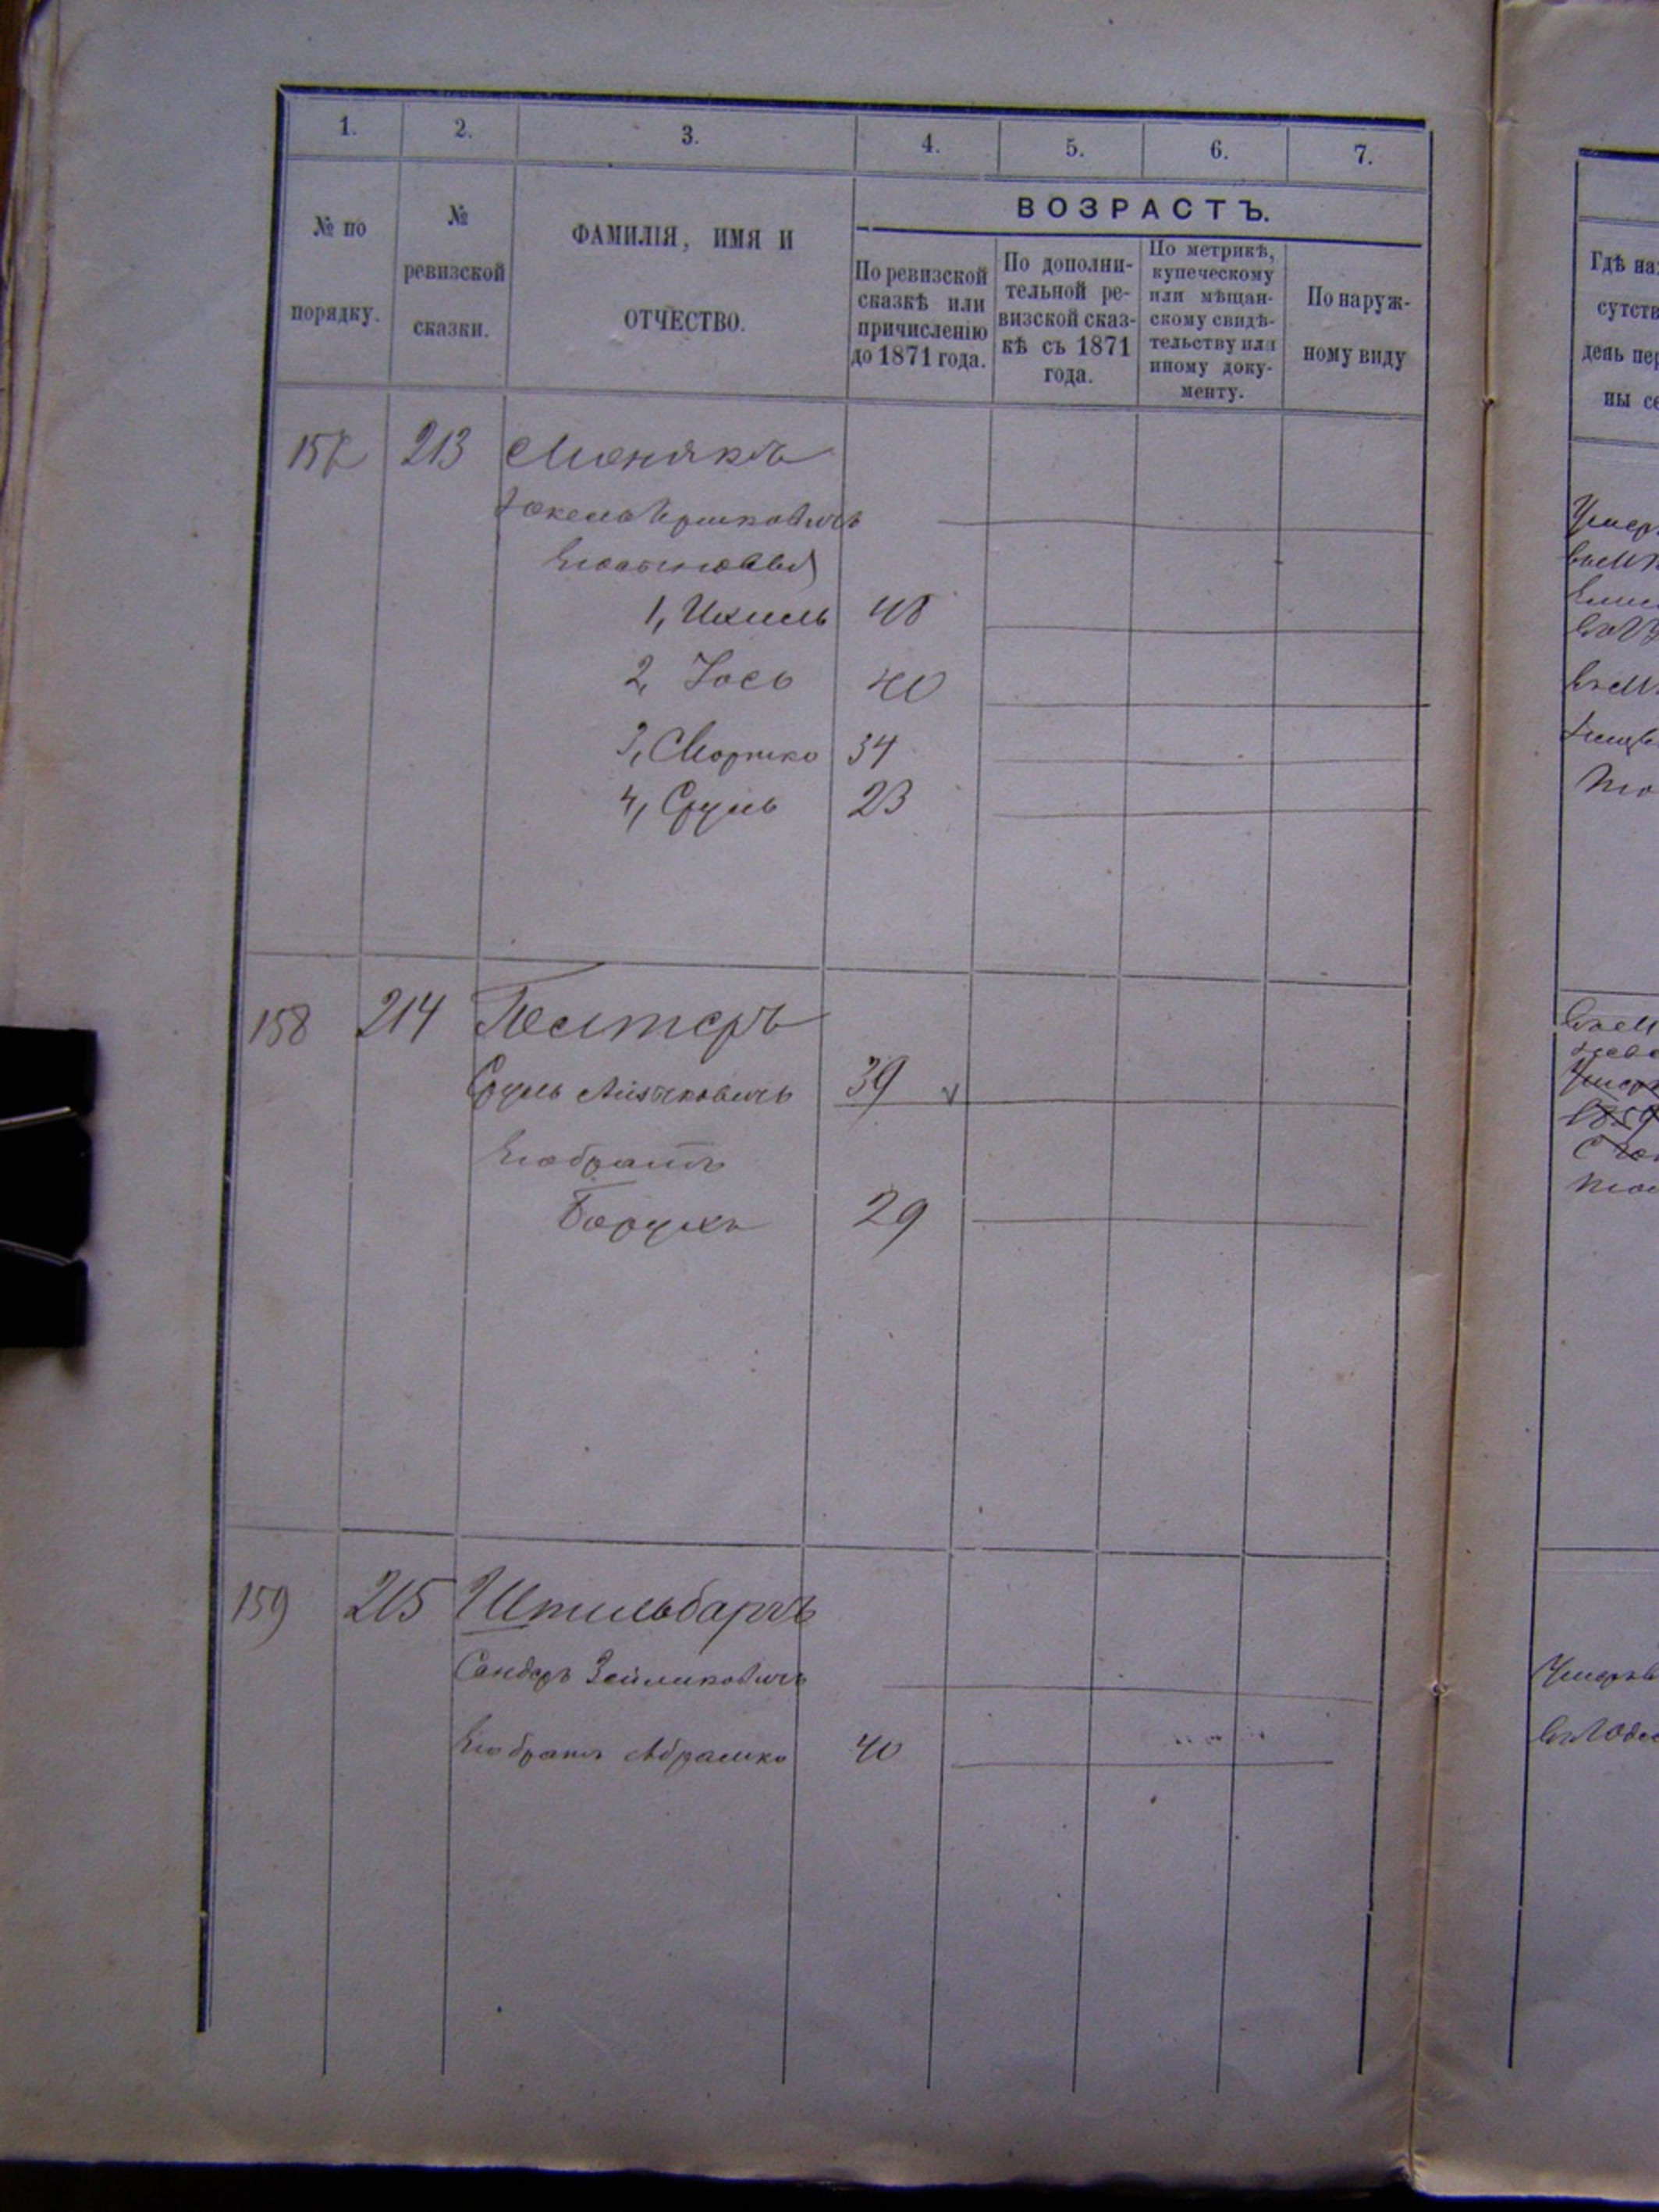 1. 2. 3. 4. 5. 6. 7.
№ по порядку.
№ ревизской сказки.
ФАМИЛІЯ, ИМЯ И
ОТЧЕСТВО.
ВОЗРАСТЪ.
По ревизской
сказкѣ или
причисленію
до 1871 года.
По дополни-
тельной ре-
визской сказ-
кѣ съ 1871
года.
По метрикѣ,
купеческому
или мѣщан-
скому свидѣ-
тельству или
иному доку-
менту.
По наруж-
ному виду
157 213 Монякъ
Іокель Ершковичъ
Его сыновья
1, Ихиль 48
2, Іось 40
3, Мортко 34
4, Сруль 23
158 214 Пельтеръ
Сруль Айзыковичъ 39
Его братъ
Борухъ 29
159 215 Штильбаръ
Сандеръ Зейликовичъ
Его братъ Абрамко 40
Гдѣ на
сутств
день пер
ны се